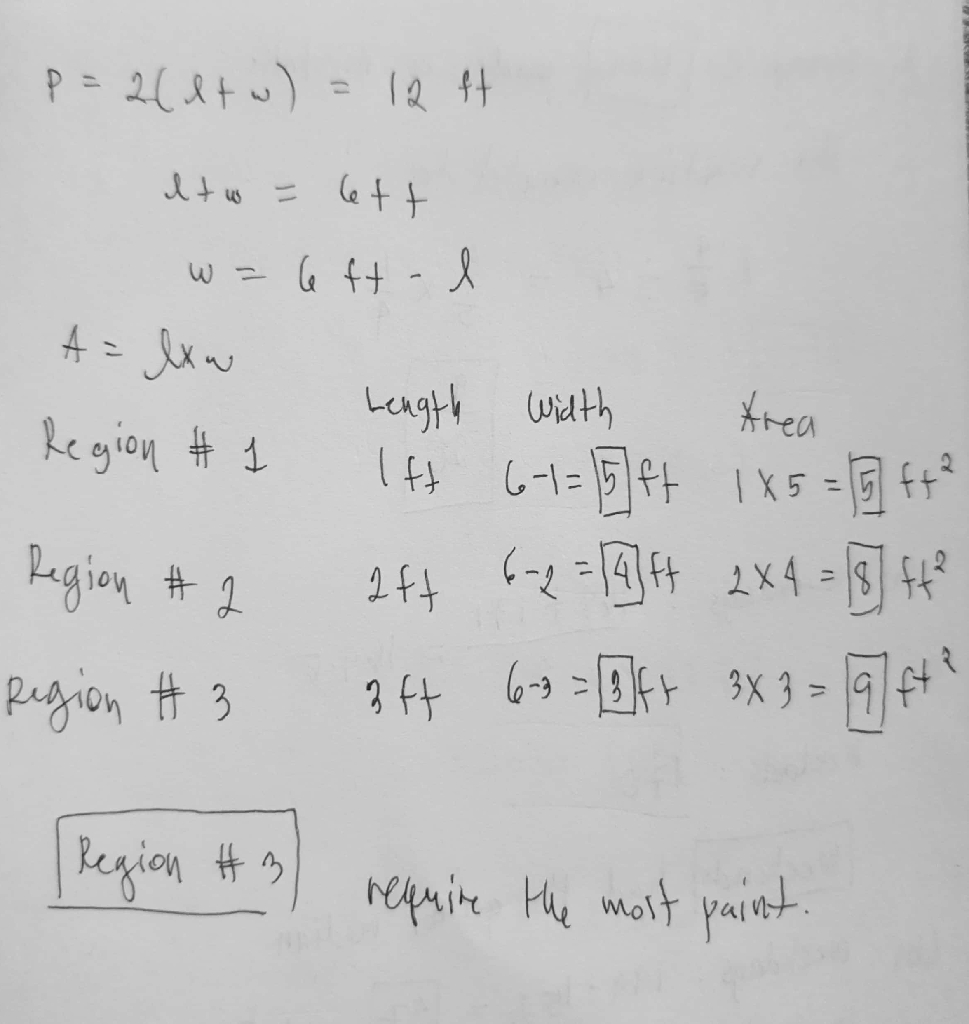 P = 2(l+w) = 12 ft
l+w = 6ft
w = 6 ft - l
A = lxw
Length Width Area
Region # 1 1 ft 6-1= 5 ft 1 X 5 = 5 ft²
Region # 2 2 ft 6-2 = 4 ft 2 X 4 = 8 ft²
Region # 3 3 ft 6-3 = 3 ft 3 X 3 = 9 ft²
Region # 3 require the most paint.